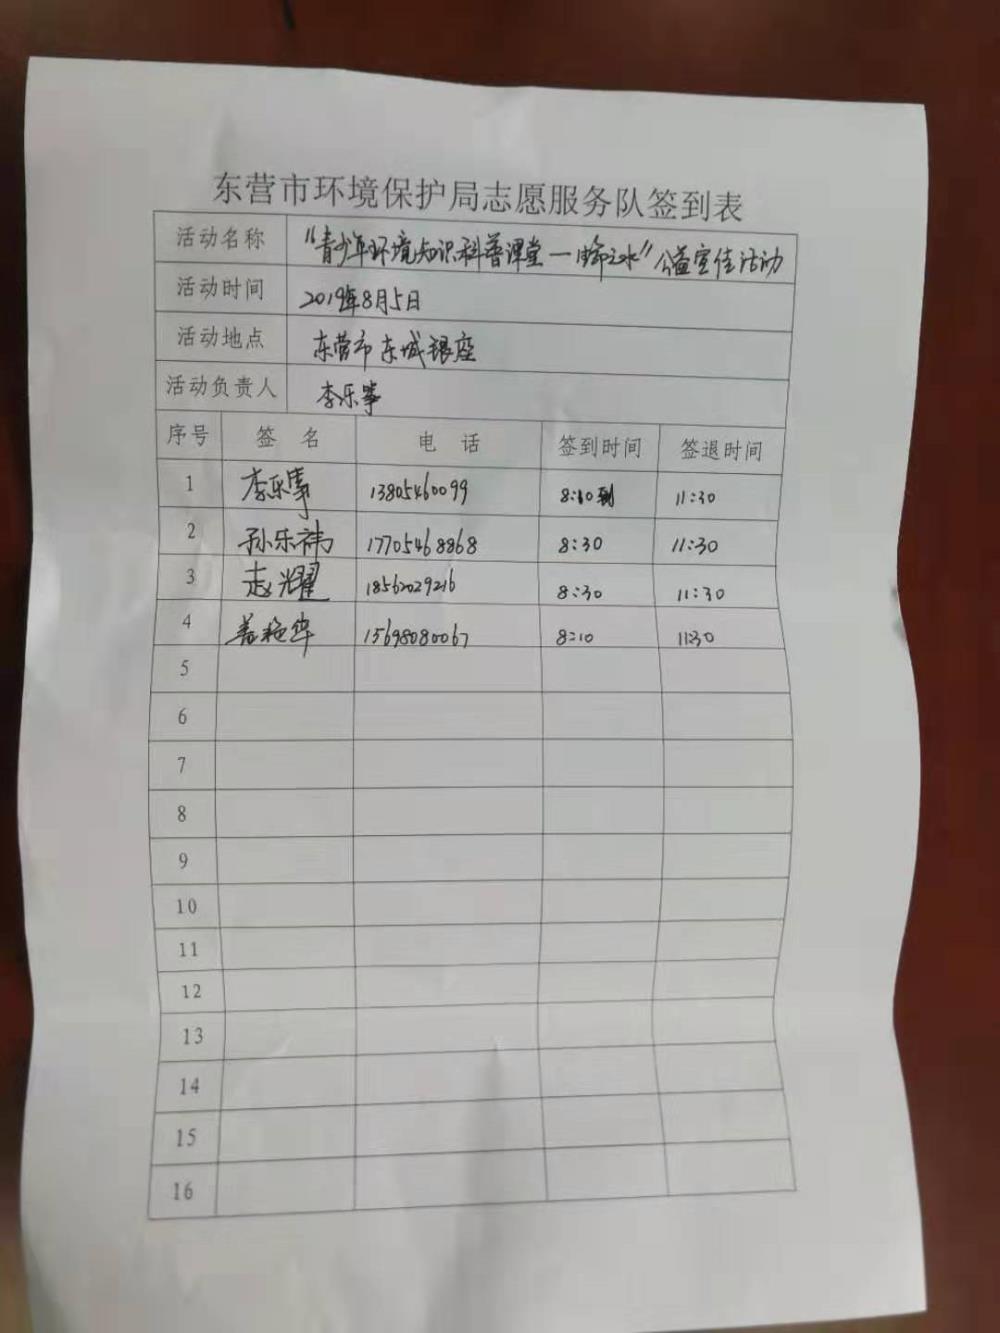 东营市环境保护局志愿服务队签到表
活动名称 "青少年环境知识科普课堂—生命之水"公益宣传活动
活动时间 2019年8月5日
活动地点 东营市东城银座
活动负责人 李乐
序号 签 名 电 话 签到时间 签退时间
1 李乐 13805460099 8:10到 11:30
2 孙乐祎 17705468868 8:30 11:30
3 赵耀 18562029216 8:30 11:30
4 15698080067 8:10 11:30
5
6
7
8
9
10
11
12
13
14
15
16